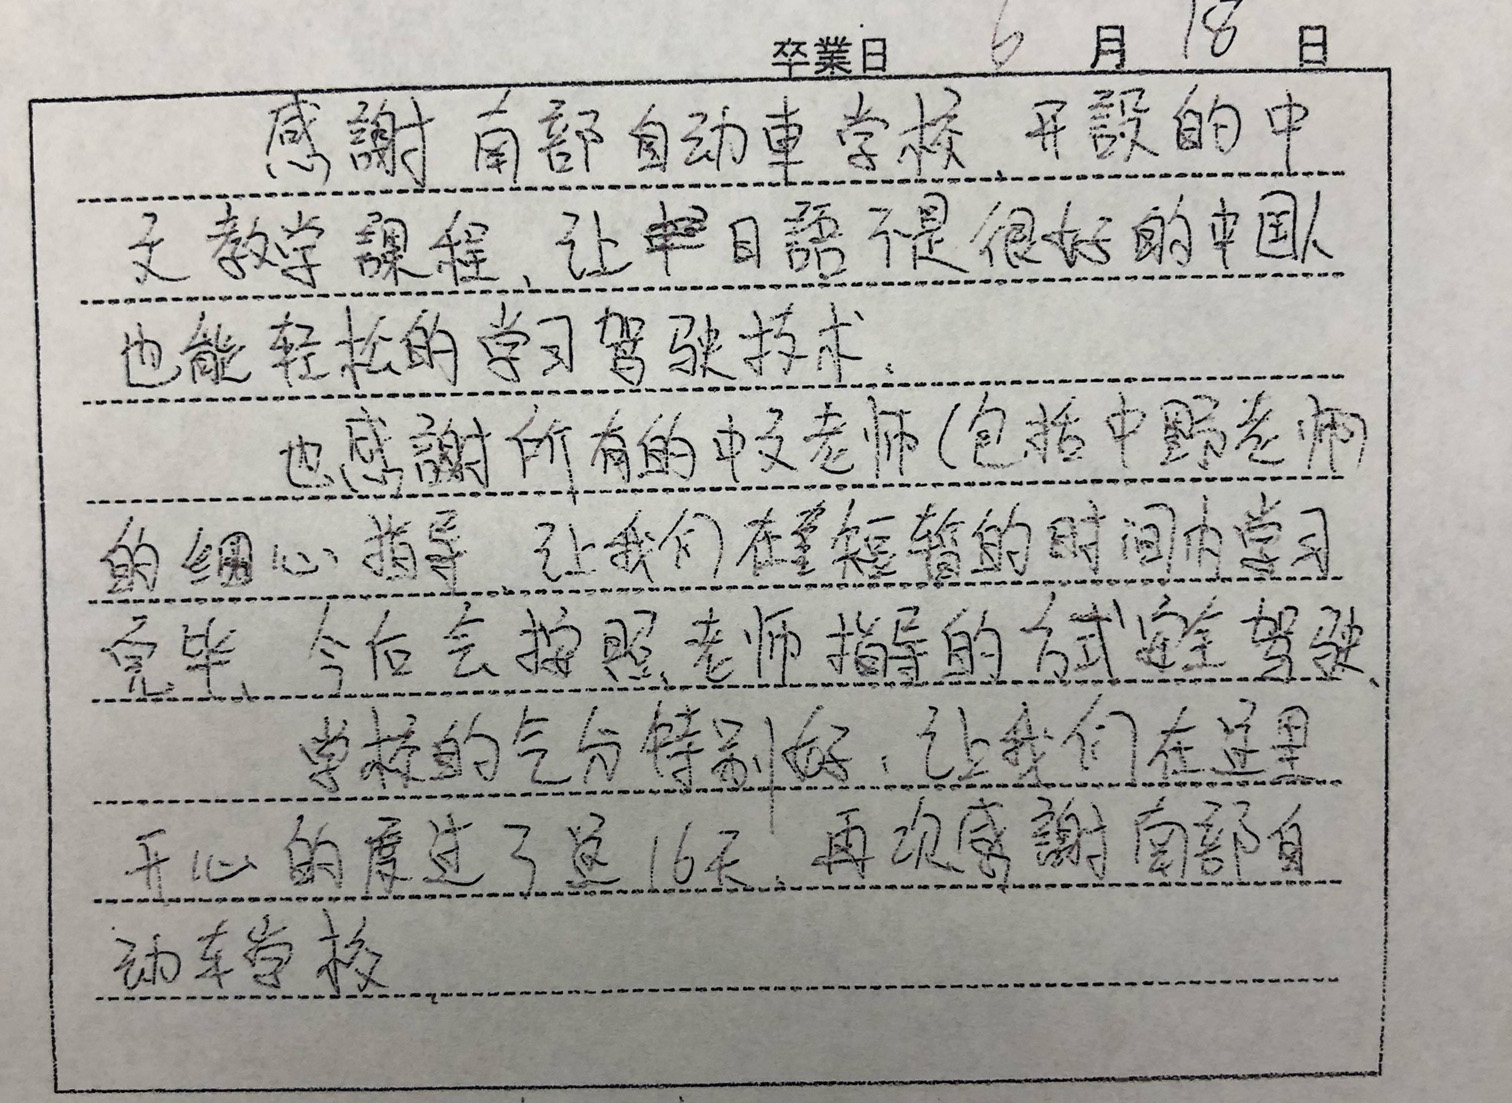 卒業日 6月18日
感謝南部自动車学校、开設的中
文教学課程、让日語不是很好的中国人
也能轻松的学习驾驶技术.
也感謝所有的中文老师(包括中野老师)
的细心指导、让我们在短暂的时间内学习
完毕、今后会按照老师指导的方式安全驾驶、
学校的气分特别好、让我们在这里
开心的度过了这16天、再次感謝南部自
动车学校